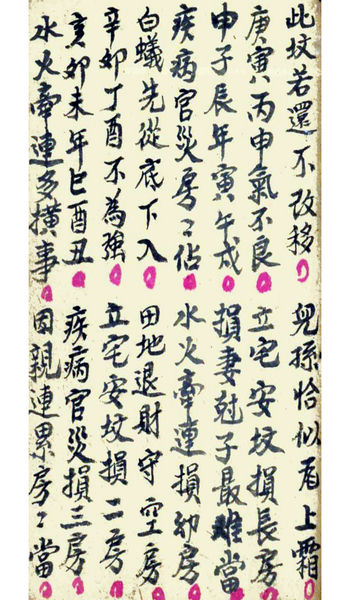 此坟若還不改移 兒孫恰似瓦上霜
庚寅丙申氣不良 立宅安坟損長房
申子辰年寅午戌 損妻尅子最難當
疾病官災房々佔 水火牽連損卯房
白蟻先從底下入 田地退財守空房
辛卯丁酉不為強 立宅安坟損二房
亥卯未年巳酉丑 疾病官災損三房
水火牽連多橫事 因親連累房々當